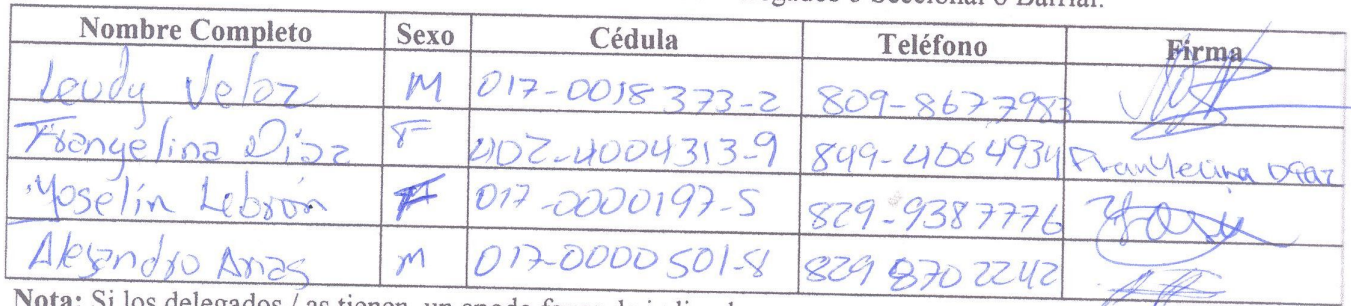 Nombre Completo Sexo Cédula Teléfono Firma
Leudy Veloz M 017-0018373-2 809-8677983
Frangelina Díaz F 402-4004313-9 849-4064934 Franyelina Díaz
Yoselín Lebrón F 017-0000197-5 829-9387776
Alejandro Arias M 017-0000501-8 829 870 2242
Nota: Si los delegados / as tienen un apodo